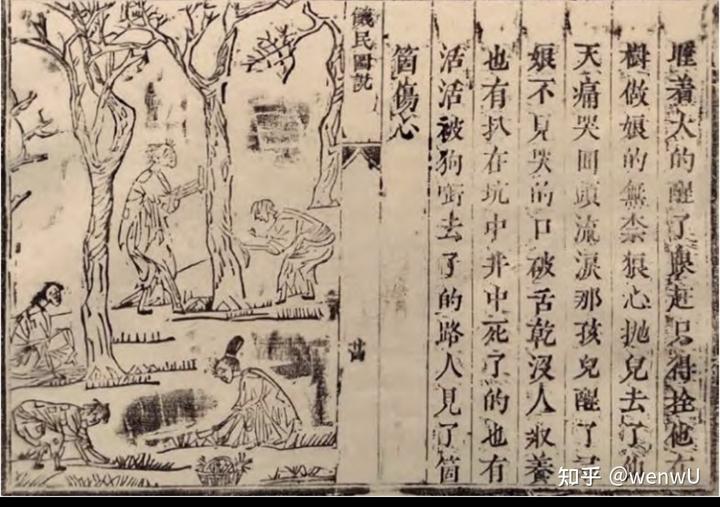 睡着大的醒了跟赶只得拴他在
樹做娘的無柰狠心抛兒去了
天痛哭回頭流淚那孩兒醒了
娘不見哭的口破舌乾没人收養
也有扒在坑中井中死了的也有
活活被狗啣去了的路人見了箇
箇傷心
饑民圖説
知乎 @wenwU